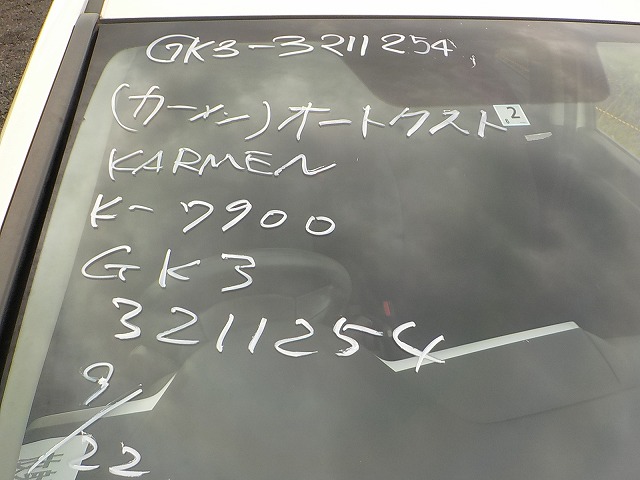 GK3-3211254
(カーメン)オートクスト 2
KARMEN
K-7900
GK3
3211254
9/22